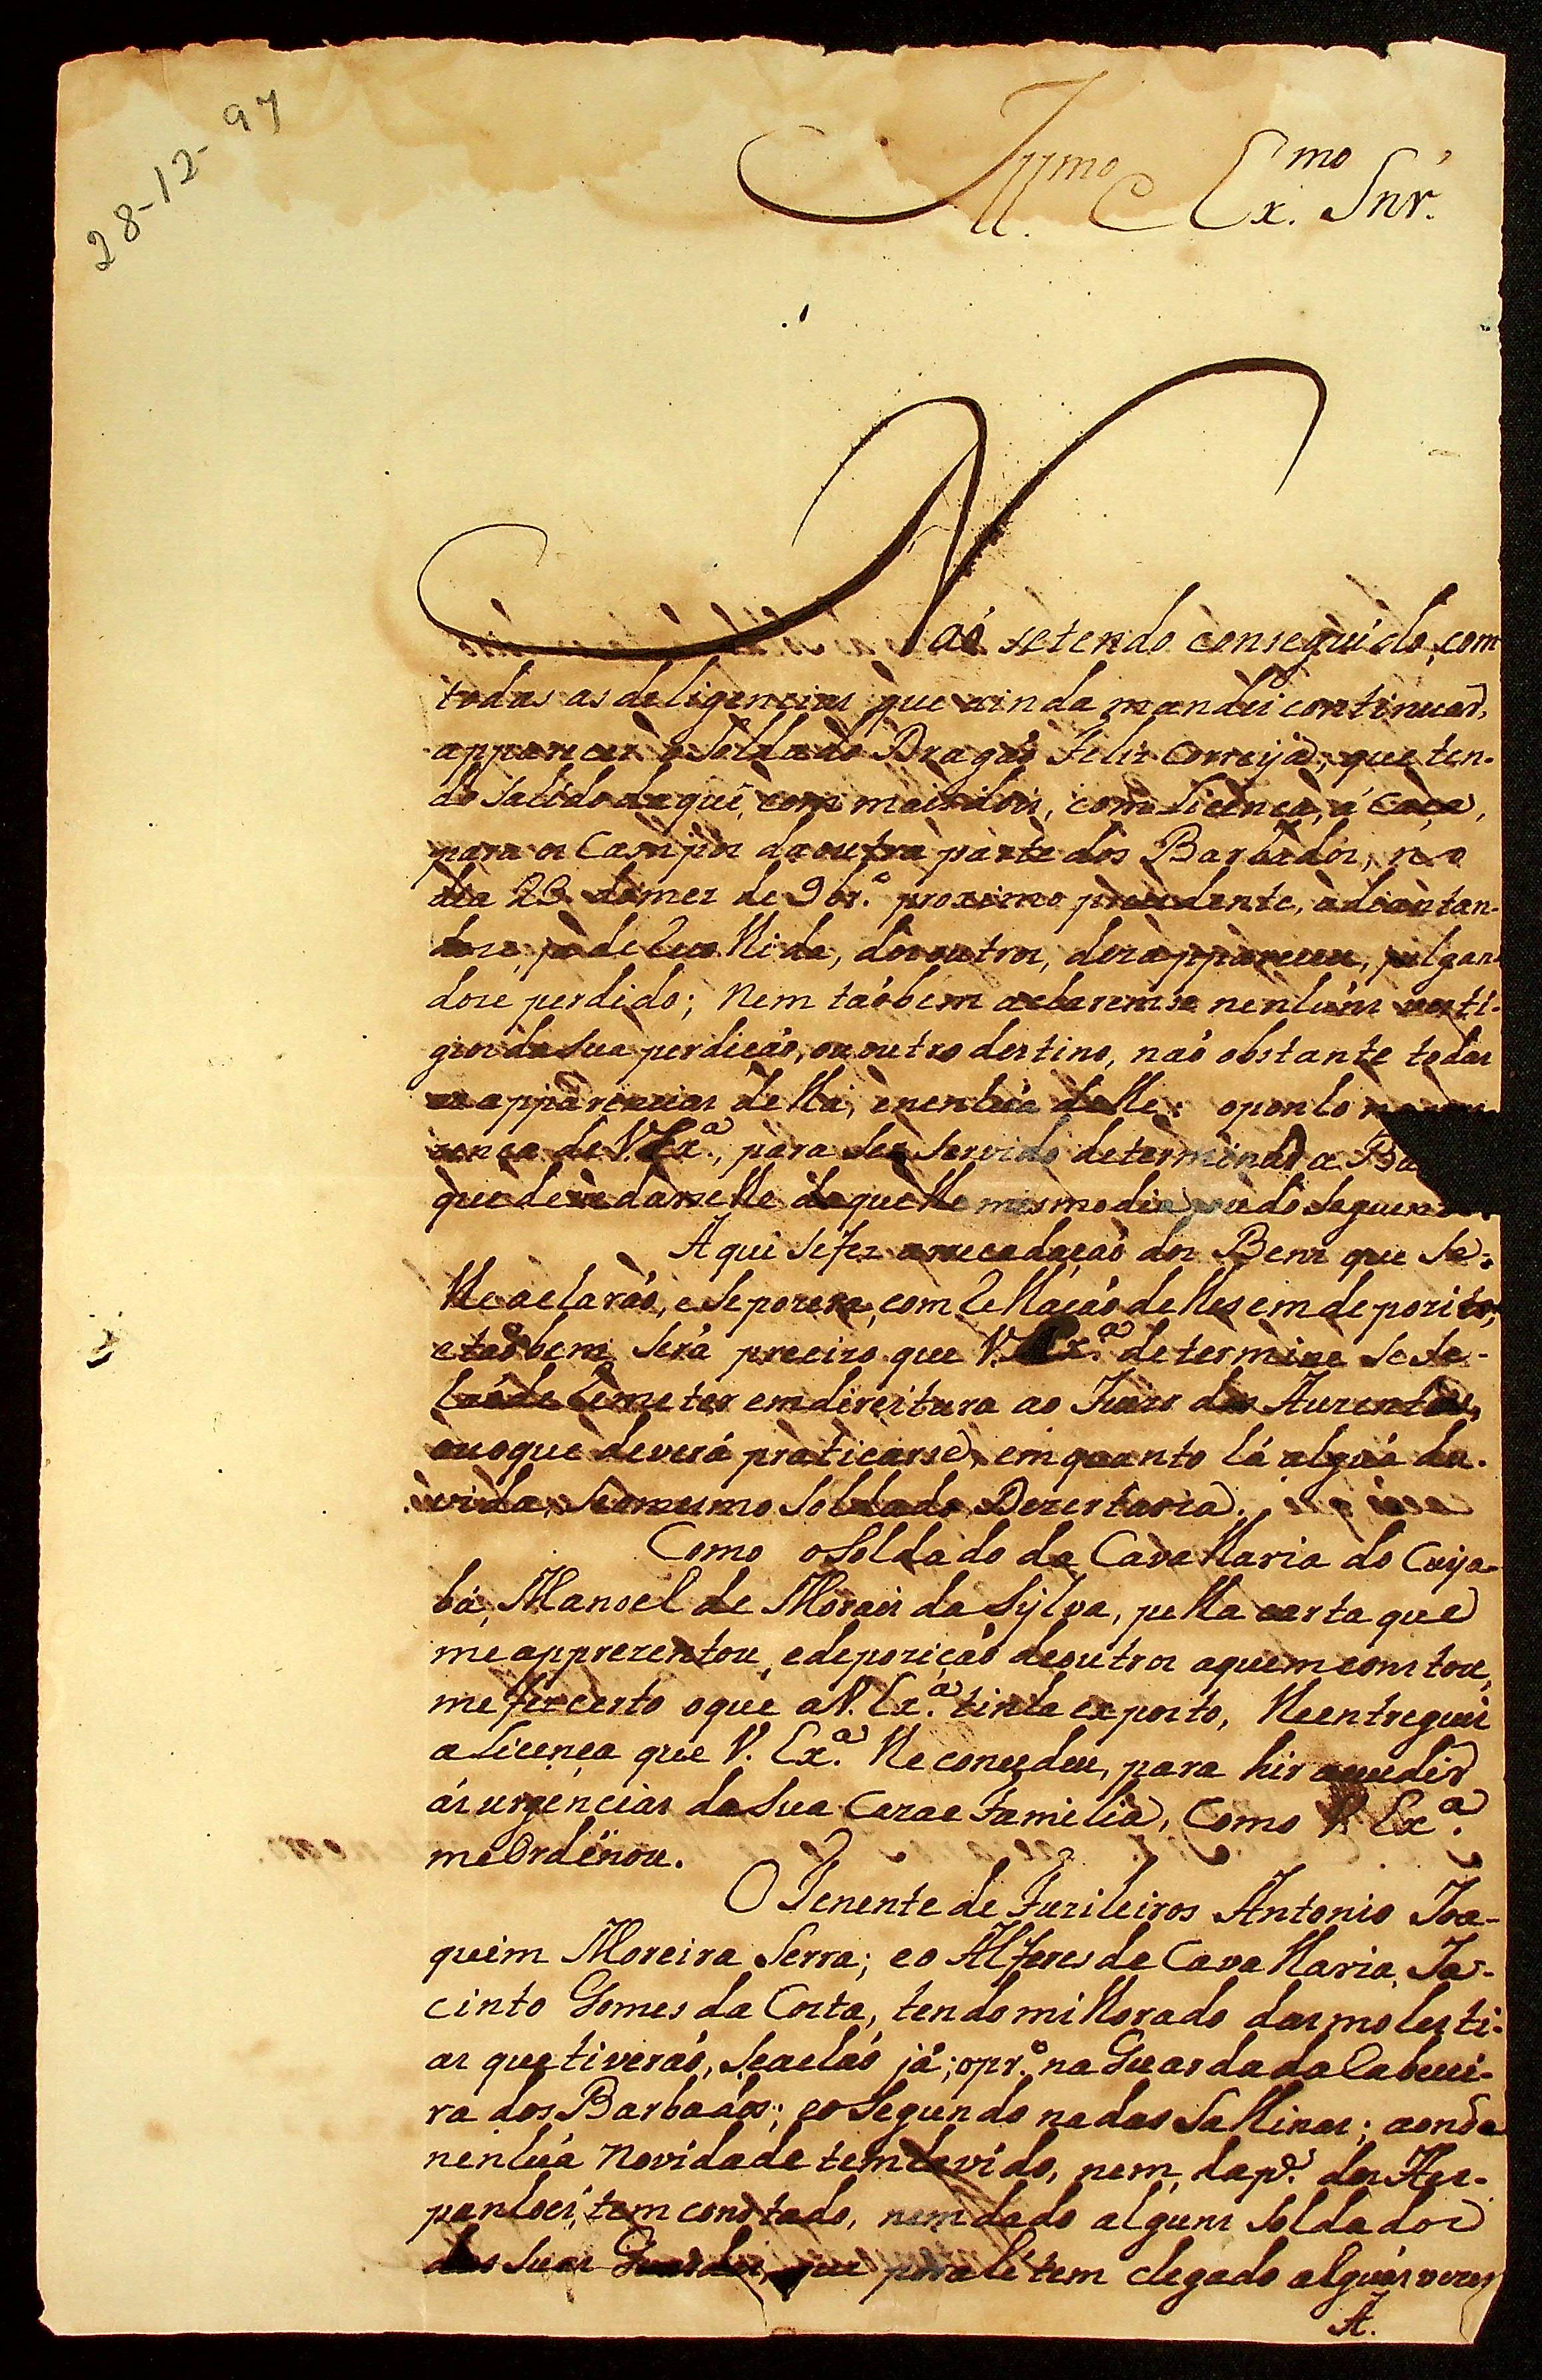 28-12-97
Ill.mo e Ex.mo Snr.
Naó setendo conseguido, com
todas as deligencias que ainda mandei continuar,
apparecer o Soldado Dragaó Felis Correya, que ten-
do Sahido daqui, com mais dois, com Licença, á Caça,
para os Campos da outra parte dos Barbados, no
dia 23 do mez de 9br.º proximo precedente, adiantan-
dose, já de Recolhida, dos outros, dezappareceu, julgan-
dose perdido; Nem taóbem acharemse nenhuns vesti-
gios da Sua perdiçaó, ou outro destino, naó obstante todas
as apparencias delha, e nenhúa delle: oponho na
zença de V. Ex.ª, para Ser Servido determinar a Ba
que deve darselhe daquelle mesmo dia, ou do Seguen
Aqui Sefez arrecadaçaó dos Bens que Se-
lhe acharaó, e Sepozera, com Rellaçaó delles em depozito,
e taóbem Será precizo que V. Ex.ª determine Se Se-
haó de Remeter em direitura ao Juizo dos Auzentes,
ou oque deverá praticarse, em quanto há algúa du-
vida, Se o mesmo Soldado Dezertaria.
Como o Soldado da Cavallaria do Cuya-
bá, Manoel de Morais da Sylva, pella carta que
me apprezentou, e depoziçaó de outros aquem constou,
me fez certo oque a V. Ex.ª tinha exposto, lhe entreguei
a Licença que V. Ex.ª lhe concedeu, para hir acudir
ás urgéncias da Sua Caza e Familia, Como V. Ex.ª
me Ordenou.
O Tenente de Fuzileiros Antonio Joa-
quim Moreira Serra; e o Alferes de Cavallaria, Ja-
cinto Gomes da Costa, tendo milhorado das molesti-
as que tiveraó, Se achaó já; o pr.º na Guarda da Cabecei-
ra dos Barbados; e o Segundo na das Sallinas; aonde
nenhúa novidade tem havido, nem da p.e dos Hes-
panhoes, tem constado, nem dado alguns Soldados
das Suas Guardas, que para lé tem chegado algúas vezes
A.